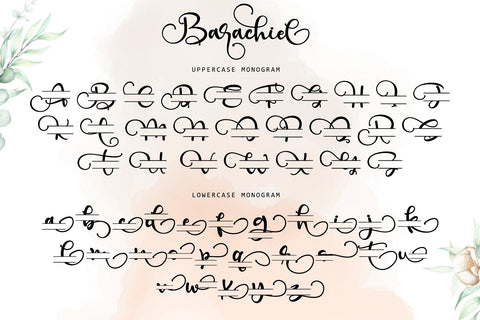 Barachiel
UPPERCASE MONOGRAM
A B C D E F G H I J
K L M N O P Q R S
T U V W X Y Z
LOWERCASE MONOGRAM
a b c d e f g h i j k
l m n o p q r s t u
v w x y z